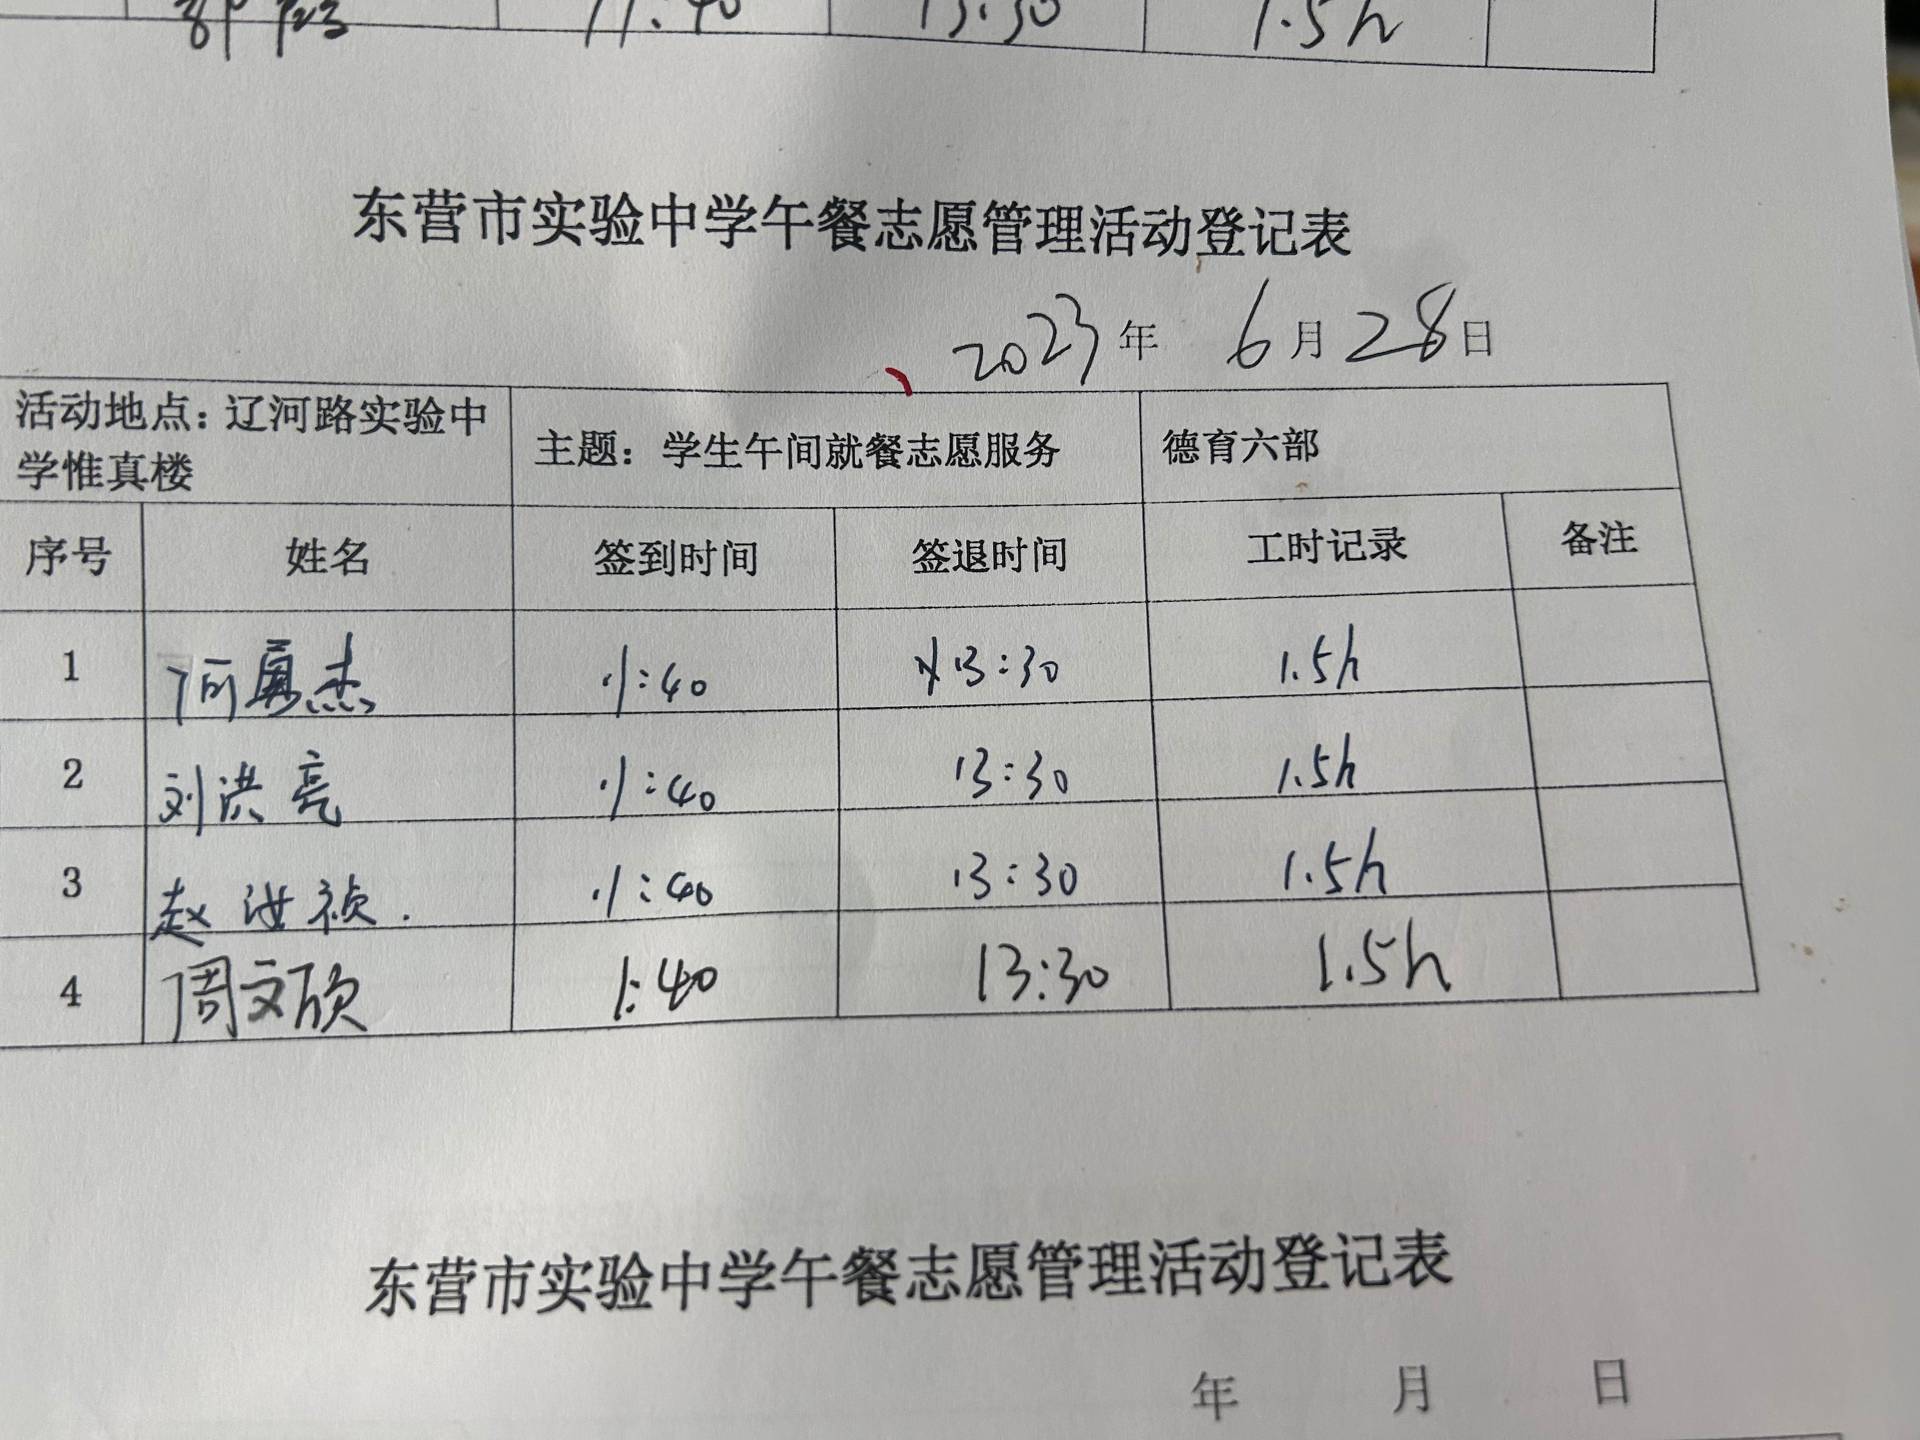 11:40 13:30 1.5h
东营市实验中学午餐志愿管理活动登记表
2023年 6月28日
活动地点：辽河路实验中
学惟真楼
主题： 学生午间就餐志愿服务
德育六部
序号 姓名 签到时间 签退时间 工时记录 备注
1 何勇杰 11:40 13:30 1.5h
2 刘洪亮 11:40 13:30 1.5h
3 赵洪祯. 11:40 13:30 1.5h
4 周文欣 11:40 13:30 1.5h
东营市实验中学午餐志愿管理活动登记表
年 月 日